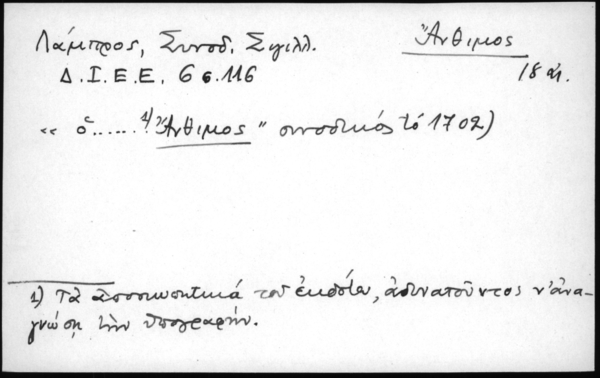 Λάμπρος, Συνοδ. Σιγιλλ. Ἄνθιμος
Δ.Ι.Ε.Ε. 6 σ.116 18 αἰ.
« ὁ......¹⁾Ἄνθιμος" συνοδικός τό 1702)
1) Τὰ ἀποσιωπητικά τοῦ ἐκδότου, ἀδυνατοῦντος ν' ἀνα-
γνώσῃ τὴν ὑπογραφήν.